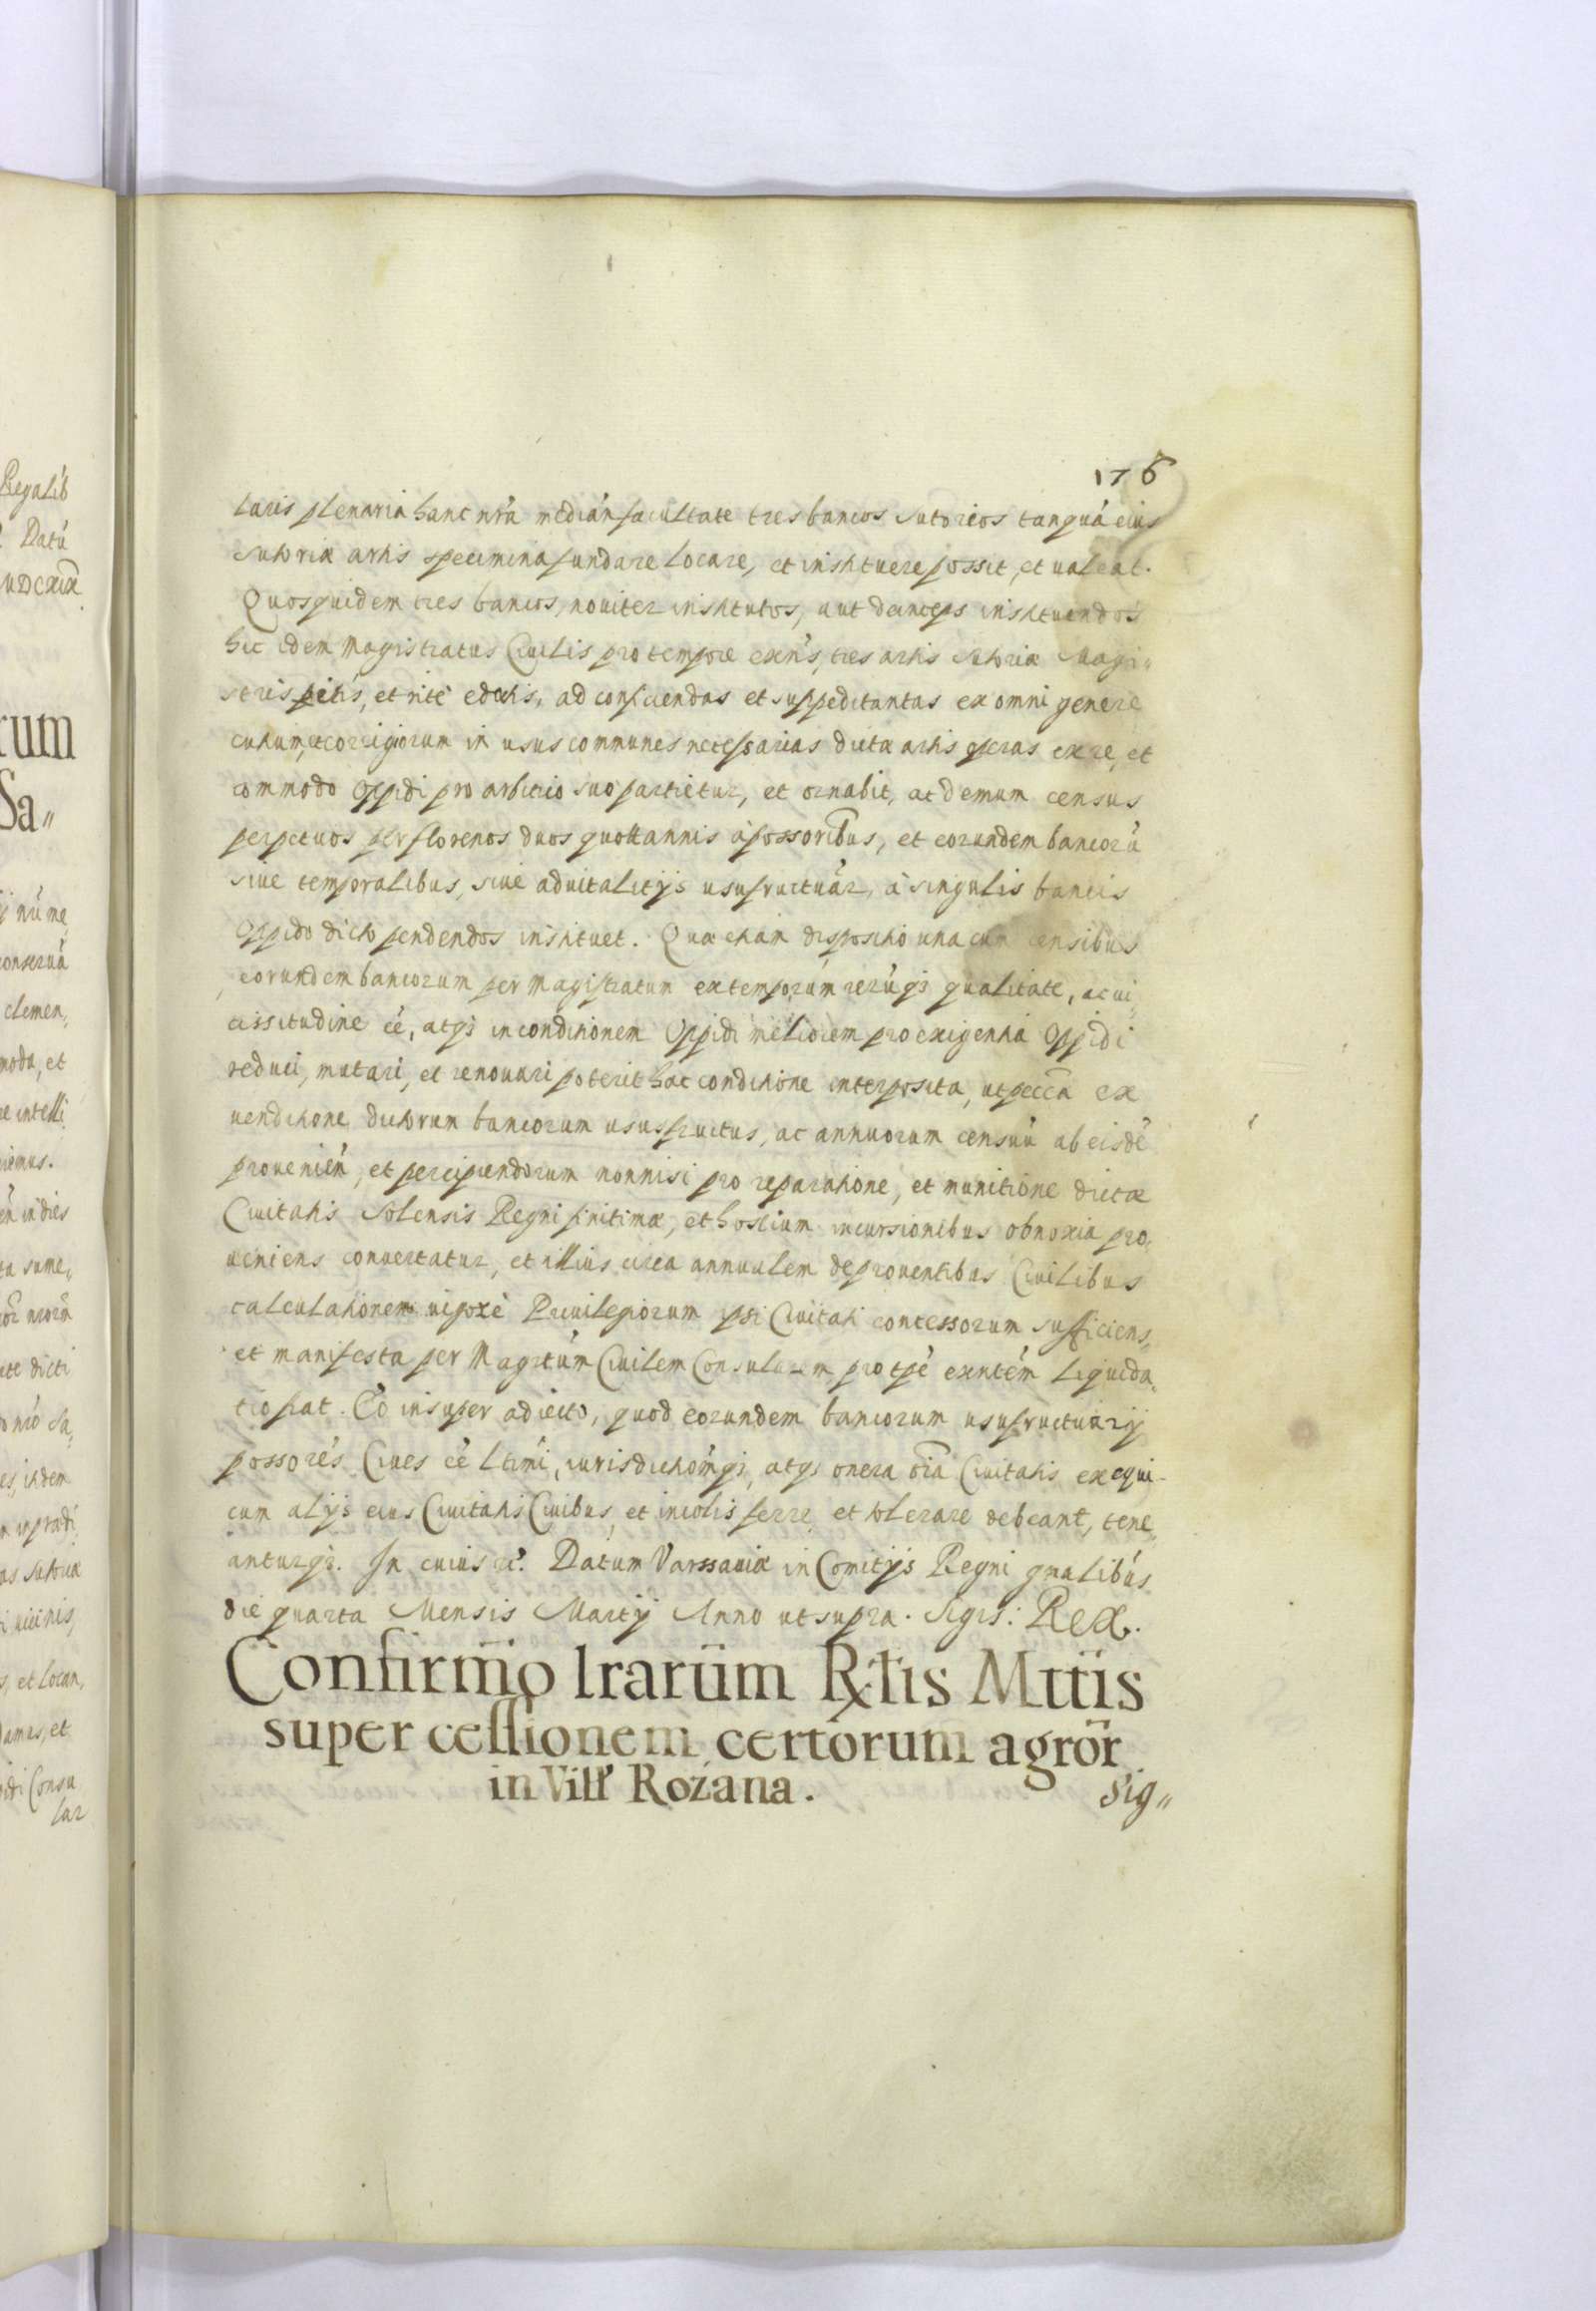 176
laris plenaria hanc nrã mediãn facultate tres bancos sutorios tanquã eius
sutoriæ artis specimina fundare locare, et instituere possit, et ualeat.
Quosquidem tres bancos, nouiter institutos, aut deinceps instituendos
hic idem Magistratus Ciuilis pro tempore exñs, tres artis sutoriæ Magi„
stris pitis, et rite edoctis, ad conficiendas et suppeditantas ex omni genere
cutium, et corrigiorum in usus communes necessarias dictæ artis operas ex re, et
commodo oppidi pro arbitrio suo partietur, et ornabit, ac demum census
perpetuos per florenos duos quottannis à possoribus, et eorundem bancorũ
siue temporalibus, siue aduitalitijs usufructuãr, à singulis bancis
oppido dicto pendendos instituet. Quæ etiam dispositio una cum censibus
eorundem bancorum per Magistratum ex temporũm rerũqз qualitate, ac ui„
cissitudine cẽ, atqз in conditionem Oppidi meliorem pro exigentia Oppidi
reduci, mutari, et renouari poterit hac conditione interposita, ut peccã ex
uenditione dictorum bancorum ususfructus, ac annuorum censuũ ab eisdẽ
prouenień, et percipiendorum nonnisi pro reparatione, et munitione dictæ
Ciuitatis Solensis Regni finitimæ, et hostium incursionibus obnoxia pro„
ueniens conuertatur, et illius circa annualem de prouentibus Ciuilibus
calculationem uigore Priuilegiorum ipsi Ciuitati concessorum sufficiens,
et manifesta per Magrtũm Ciuilem Consularem pro tpẽ exntẽm liquida„
tio fiat. Eò insuper adiecto, quod eorundem bancorum usufructuarij
possorẽs Ciues cẽ ltimi, iurisdictiomqз, atqз onera oĩa Ciuitatis ex equi-
cum alijs eius Ciuitatis Ciuibus, et incolis ferre et tolerare debeant, tene„
anturqз. In cuius rẽ. Datum Varssauiæ in Comitijs Regni gnalibus
die quarta Mensis Martij Anno ut supra. Sigis: Rex.
Confirm̃o lrarũm Rx̃tis Mttis
super cessionem certorum agrõr
in Vill' Rożana.
Sig„